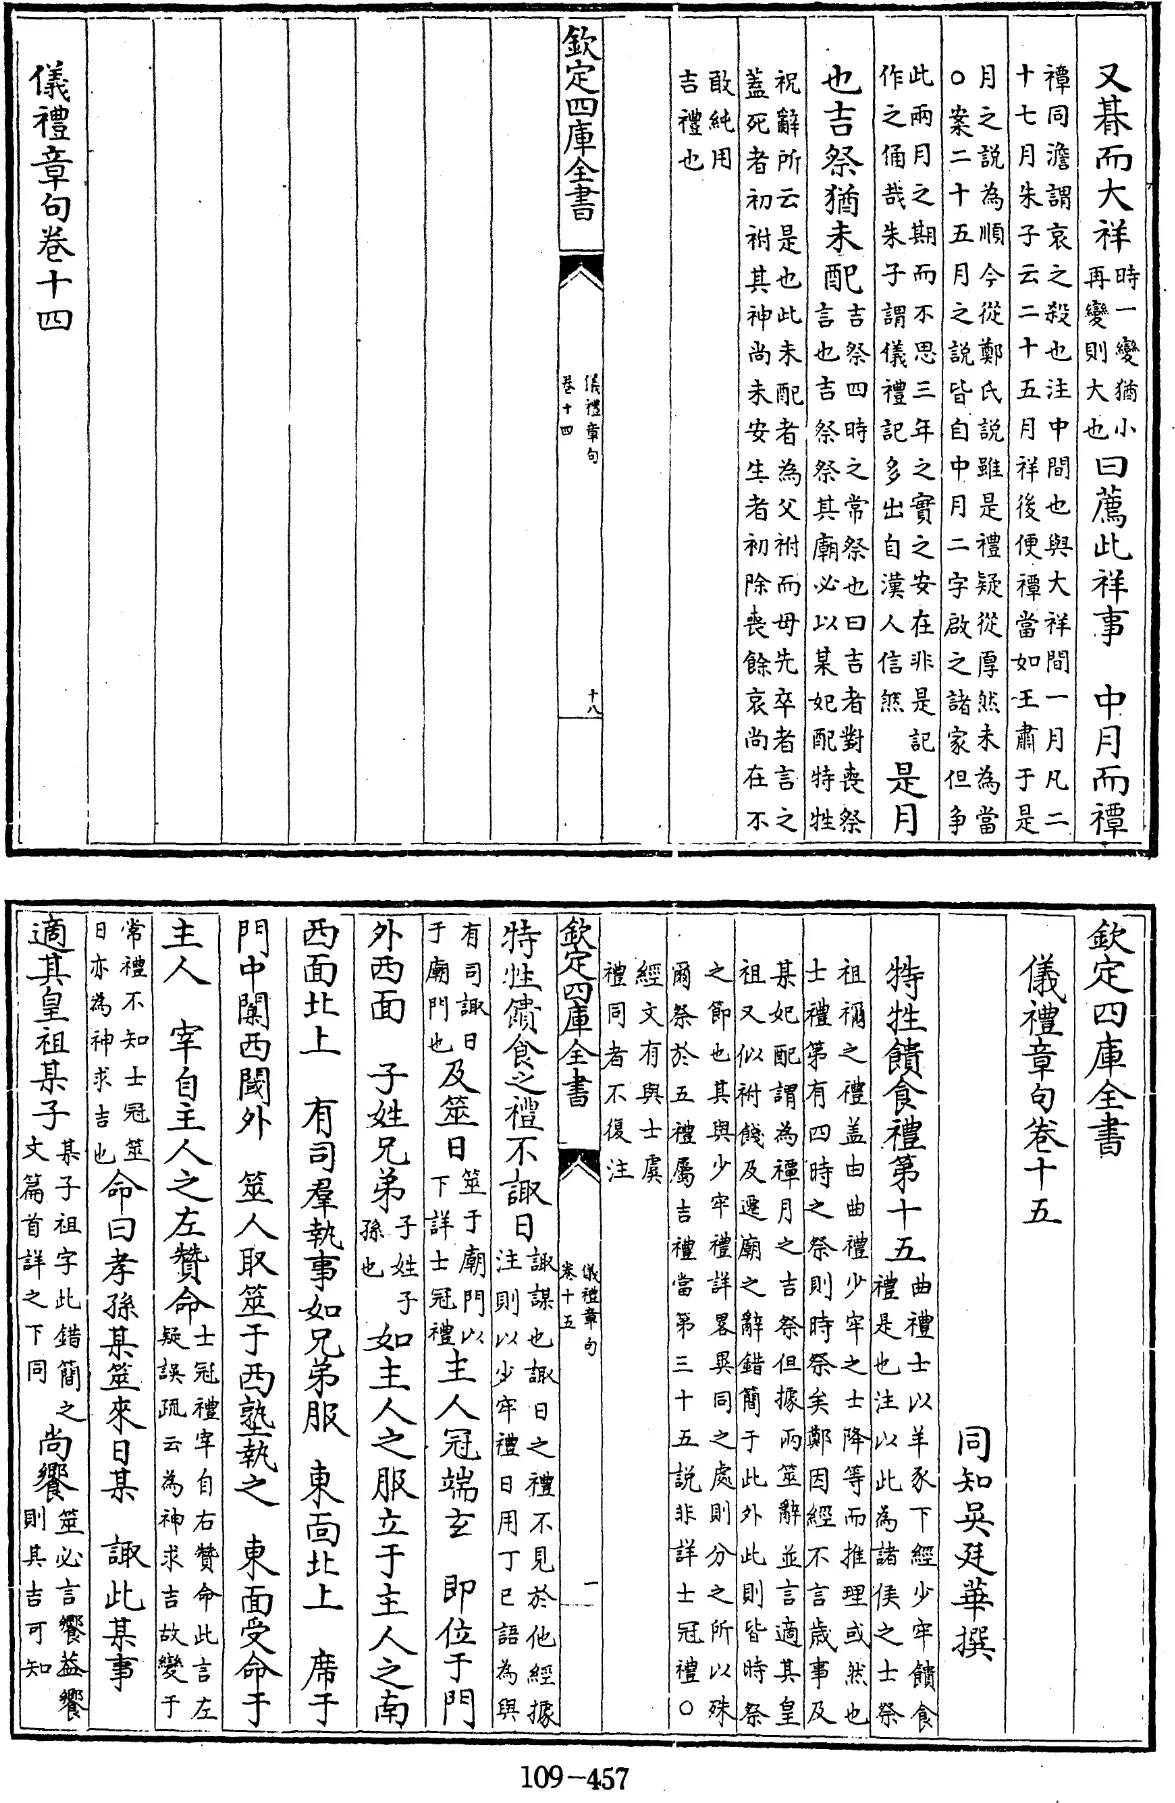 又朞而大祥時一變猶小再變則大也曰薦此祥事　中月而禫
禫同澹謂哀之殺也注中間也與大祥間一月凡二
十七月朱子云二十五月祥後便禫當如王肅于是
月之說為順今從鄭氏說雖是禮疑從厚然未為當
○案二十五月之說皆自中月二字啟之諸家但爭
此兩月之期而不思三年之實之安在非是記
作之俑哉朱子謂儀禮記多出自漢人信然　是月
也吉祭猶未配吉祭四時之常祭也曰吉者對喪祭言也吉祭祭其廟必以某妃配特牲
祝辭所云是也此未配者為父祔而母先卒者言之
蓋死者初祔其神尚未安生者初除喪餘哀尚在不
敢純用
吉禮也
欽定四庫全書　儀禮章句　卷十四　十八
儀禮章句卷十四
欽定四庫全書
儀禮章句卷十五
同知吳廷華撰
特牲饋食禮第十五曲禮士以羊豕下經少牢饋食禮是也注以此為諸侯之士祭
祖禰之禮蓋由曲禮少牢之士降等而推理或然也
士禮第有四時之祭則時祭矣鄭因經不言歲事及
某妃配謂為禫月之吉祭但據兩筮辭並言適其皇
祖又似祔餞及遷廟之辭錯簡于此外此則皆時祭
之節也其與少牢禮詳畧異同之處則分之所以殊
爾祭於五禮屬吉禮當第三十五說非詳士冠禮○
經文有與士虞
禮同者不復注
欽定四庫全書　儀禮章句　卷十五　一
特牲饋食之禮不諏日諏謀也諏日之禮不見於他經據注則以少牢禮日用丁巳語為與
有司諏日于廟門也及筮日筮于廟門以下詳士冠禮主人冠端玄　即位于門
外西面　子姓兄弟子姓子孫也如主人之服立于主人之南
西面北上　有司羣執事如兄弟服　東面北上　席于
門中闑西閾外　筮人取筮于西塾執之　東面受命于
主人　宰自主人之左贊命士冠禮宰自右贊命此言左疑誤疏云為神求吉故變于
常禮不知士冠筮日亦為神求吉也命曰孝孫某筮來日某　諏此某事
適其皇祖某子某子祖字此錯簡之文篇首詳之下同尚饗筮必言饗益饗則其吉可知
109-457